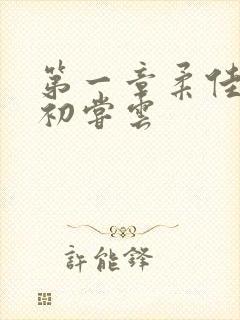 第一章柔佳
初嘗雲
許能鋒